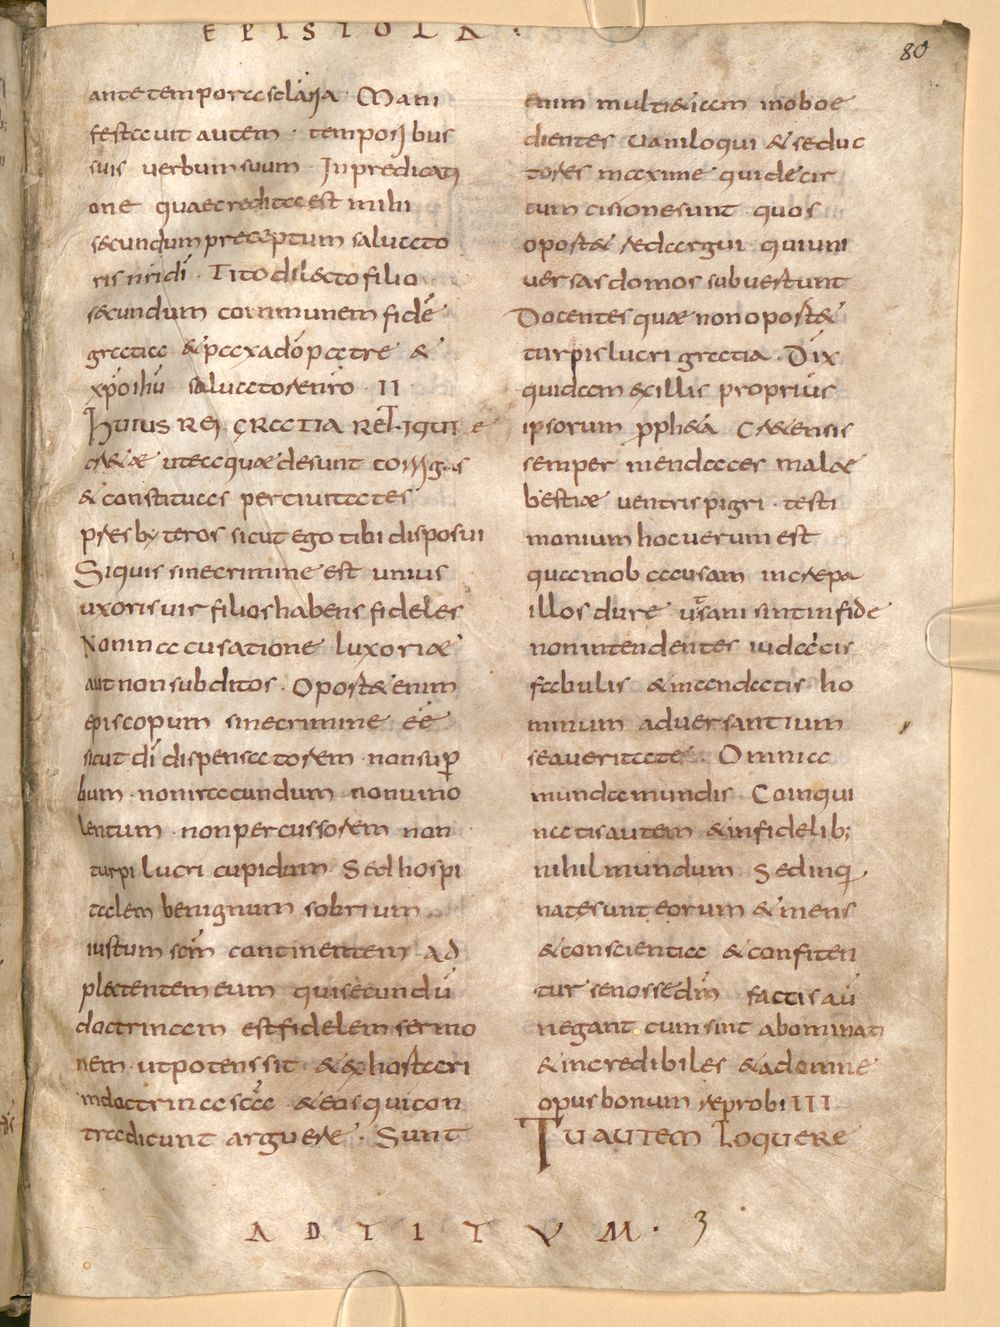 EPISTOLA·
80
ante tempora secularia · Mani
festavit autem · temporibus
suis verbum suum In predicati
one quae credita est mihi
secundum preceptum salvato
ris nr̄i dī · Tito dilecto filio
secundum communem fidē
gratia & pax a dō patre &
xp̄o ihū salvatore nr̄o · II
Huius rei gratia reliqui te
cretae ut ea quae desunt corrigas
& constituas per civitates
presbyteros sicut ego tibi disposui
Si quis sine crimine est unius
uxoris vir filios habens fideles
Non in accusatione luxoriae
aut non subditos · Oportet enim
episcopum sine crimine eē
sicut dī dispensatorem · non sup̄
bum · non iracundum · non vino
lentum · non percussorem non
turpi lucri cupidum Sed hospi
talem benignum sobrium
iustum sc̄m continentem ad
plectentem eum qui secundū
doctrinam est fidelem sermo
nem · ut potens sit & exhortari
in doctrina sana & eos qui con
tradicunt arguere · Sunt
enim multi & iam inoboe
dientes vaniloqui & seduc
tores maxime qui de cir
cumcisione sunt quos
oportet redargui qui uni
versas domos subvertunt
Docentes quae non oportet
turpis lucri gratia · Dix
quidam ex illis proprius
ipsorum pph&a Cretensis
semper mendaces malae
bestiae ventris pigri · testi
monium hoc verum est
quam ob causam increpa
illos dure ut sani sint in fide
non intendentes iudaicis
fabulis & mandatis ho
minum adversantium
se a veritate · Omnia
munda mundis Coinqui
natis autem & infidelib;
nihil mundum Sed inq
nate sunt eorum & mens
& conscientia & confiten
tur se nosse dm̄ factis aū
negant cum sint abominati
& incredibiles & ad omne
opus bonum reprobi III
Tu autem loquere
AD TITUM · 3